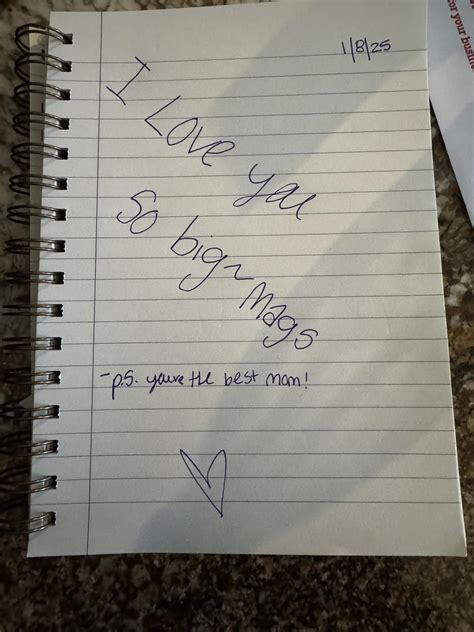 1/8/25
I Love you
So big~
Mags
-p.s. youre the best mom!
for your busine